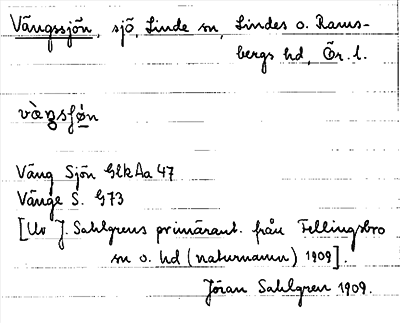 Vängssjön, sjö, Linde sn, Lindes o. Rams-
bergs hd, Ör. l.
Väng Sjön GlkAa 47
Vänge S. G73
[Ur J. Sahlgrens primärant. från Fellingsbro
sn o. hd (naturnamn) 1909].
Jöran Sahlgren 1909.